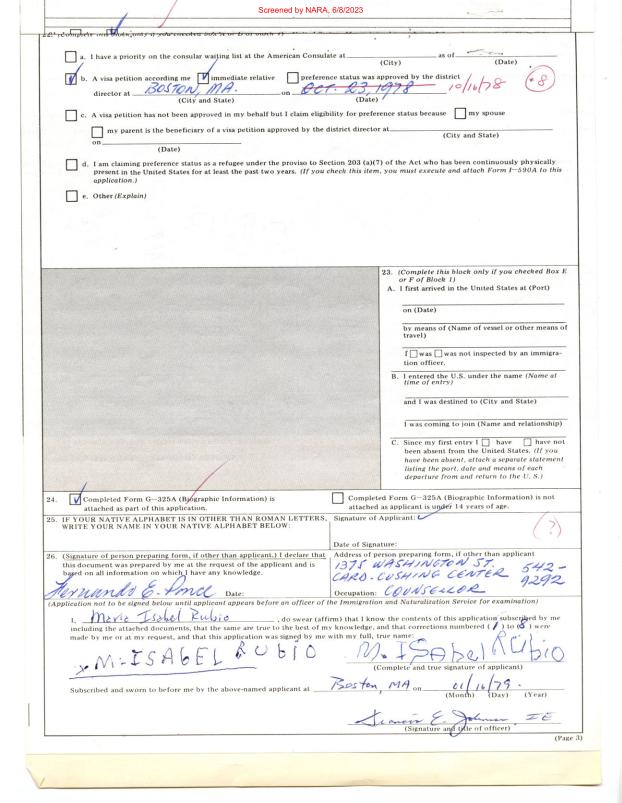 Screened by NARA, 6/8/2023
a. I have a priority on the consular waiting list at the American Consulate at as of
(City) (Date)
b. A visa petition according me immediate relative preference status was approved by the district
director at BOSTON, MA. on OCT. 23, 1978 10/16/78 8
(City and State) (Date)
c. A visa petition has not been approved in my behalf but I claim eligibility for preference status because my spouse
my parent is the beneficiary of a visa petition approved by the district director at
(City and State)
on
(Date)
d. I am claiming preference status as a refugee under the proviso to Section 203 (a)(7) of the Act who has been continuously physically
present in the United States for at least the past two years. (If you check this item, you must execute and attach Form I-590A to this
application.)
e. Other (Explain)
23. (Complete this block only if you checked Box E
or F of Block 1)
A. I first arrived in the United States at (Port)
on (Date)
by means of (Name of vessel or other means of
travel)
I was was not inspected by an immigra-
tion officer.
B. I entered the U.S. under the name (Name at
time of entry)
and I was destined to (City and State)
I was coming to join (Name and relationship)
C. Since my first entry I have have not
been absent from the United States. (If you
have been absent, attach a separate statement
listing the port, date and means of each
departure from and return to the U. S.)
24. Completed Form G-325A (Biographic Information) is
attached as part of this application.
Completed Form G-325A (Biographic Information) is not
attached as applicant is under 14 years of age.
25. IF YOUR NATIVE ALPHABET IS IN OTHER THAN ROMAN LETTERS,
WRITE YOUR NAME IN YOUR NATIVE ALPHABET BELOW:
Signature of Applicant: (?)
Date of Signature:
26. (Signature of person preparing form, if other than applicant.) I declare that
this document was prepared by me at the request of the applicant and is
based on all information on which I have any knowledge.
Fernando E. Ponce Date:
Address of person preparing form, if other than applicant
1375 WASHINGTON ST.
CARD. CUSHING CENTER 542-
9292
Occupation: COUNSELLOR
(Application not to be signed below until applicant appears before an officer of the Immigration and Naturalization Service for examination)
I, Maria Isabel Rubio, do swear (affirm) that I know the contents of this application subscribed by me
including the attached documents, that the same are true to the best of my knowledge, and that corrections numbered (1) to (8) were
made by me or at my request, and that this application was signed by me with my full, true name:
x M-ISABEL RUBIO M. ISAbel RUbio
(Complete and true signature of applicant)
Subscribed and sworn to before me by the above-named applicant at Boston, MA on 01/16/79.
(Month) (Day) (Year)
Francis E. IE
(Signature and title of officer)
(Page 3)